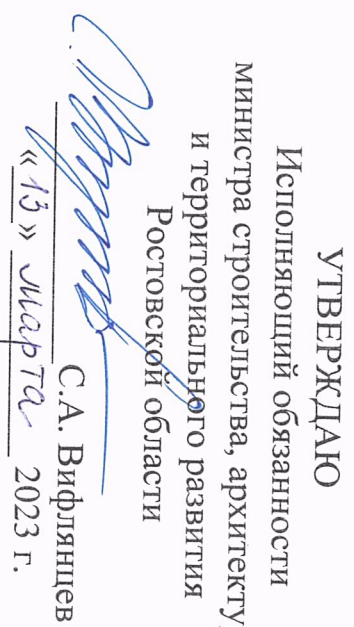 УТВЕРЖДАЮ
Исполняющий обязанности
министра строительства, архитекту
и территориального развития
Ростовской области
С.А. Вифлянцев
«13» марта 2023 г.